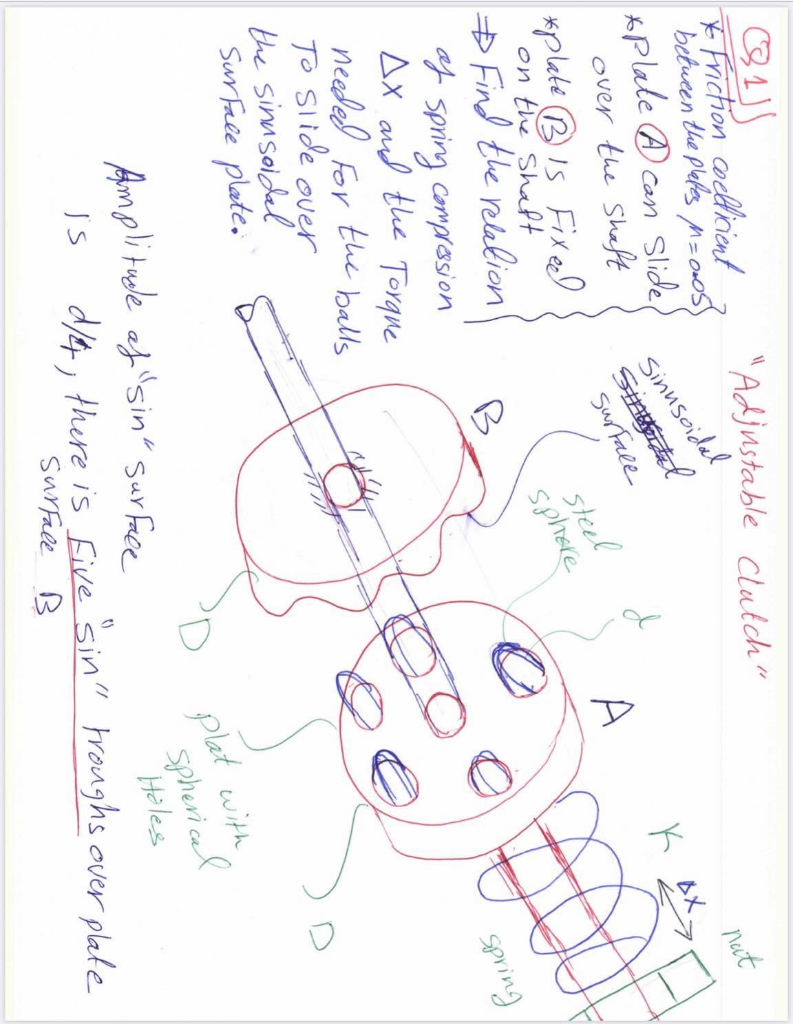 Q1)
"Adjustable Clutch"
* Friction coefficient
between the plates μ=0.05
* Plate A can slide
over the shaft
* plate B is Fixed
on the shaft
⇒ Find the relation
of spring compression
Δx and the Torque
needed for the balls
To slide over
the sinusoidal
surface plate.
sinusoidal
surface
B
steel
sphere
d
A
K
Δx
nut
D
plat with
spherical
Holes
D
spring
Amplitude of "sin" surface
is d/4, there is Five "sin" troughs over plate
surface B